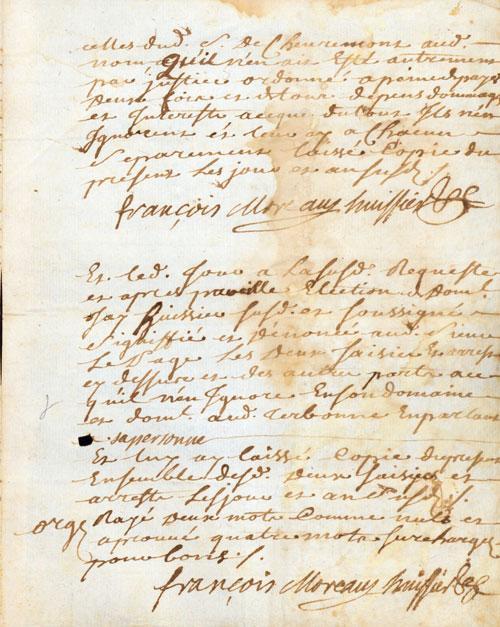 celles dud. S. de Cheuremont aud.
nom quil nen ait Esté autrement
par justice ordonné a peine de payer
deux fois et de tous depens dommages
et Interests acque du tout Ils n'en
Ignorent et leur ay a Chacun
Separement laissé Copie du
present Les jour et an susd.
françois Moreau huissier
Et led. Jour a La susd. Requeste
et apres pareille Election de Domi.
Jay huissier susd. et soussigné
Signiffié et dénoncé aud. Sieur
Le Page Les deux saisies et arrests
cy dessus et des autre parts a ce
quil nen Ignore En son domaine
et domi. aud. Terbonne En parlant
a sa personne
Et luy ay laissé Copie du present
Ensemble desd. deux saisies et
arrests Les jour et an susd.
Rayé deux mots Comme nuls et
aprouué quatre mots surchargez
pour bons
françois Moreau huissier